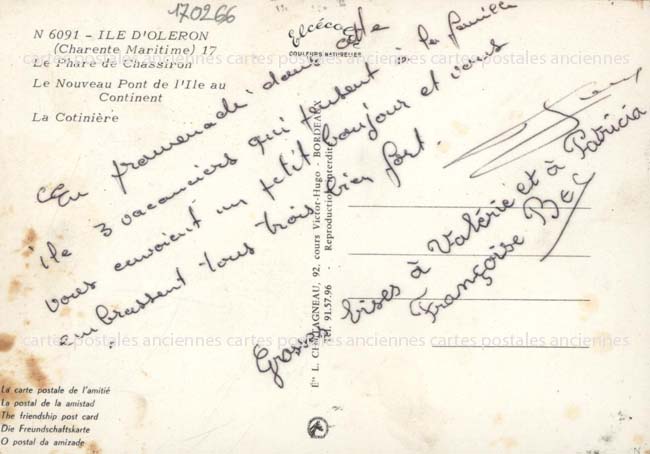 170266
N 6091 - ILE D'OLERON
(Charente Maritime) 17
Le Phare de Chassiron
Le Nouveau Pont de l'Ile au
Continent
La Cotinière
Elcécolor
COULEURS NATURELLES
En promenade dans cette
île 3 vacanciers qui pensent à la famille
vous envoient un petit bonjour et vous
embrassent tous trois bien fort.
Grosses bises à Valérie et à Patricia
Françoise
Éts L. CHATAGNEAU, 92, cours Victor-Hugo - BORDEAUX
Tél. 91.57.96 - Reproduction interdite
La carte postale de l'amitié
La postal de la amistad
The friendship post card
Die Freundschaftskarte
O postal da amizade
cartes postales anciennes cartes postales anciennes cartes postales anciennes cartes postales anciennes
cartes postales anciennes cartes postales anciennes cartes postales anciennes cartes postales anciennes